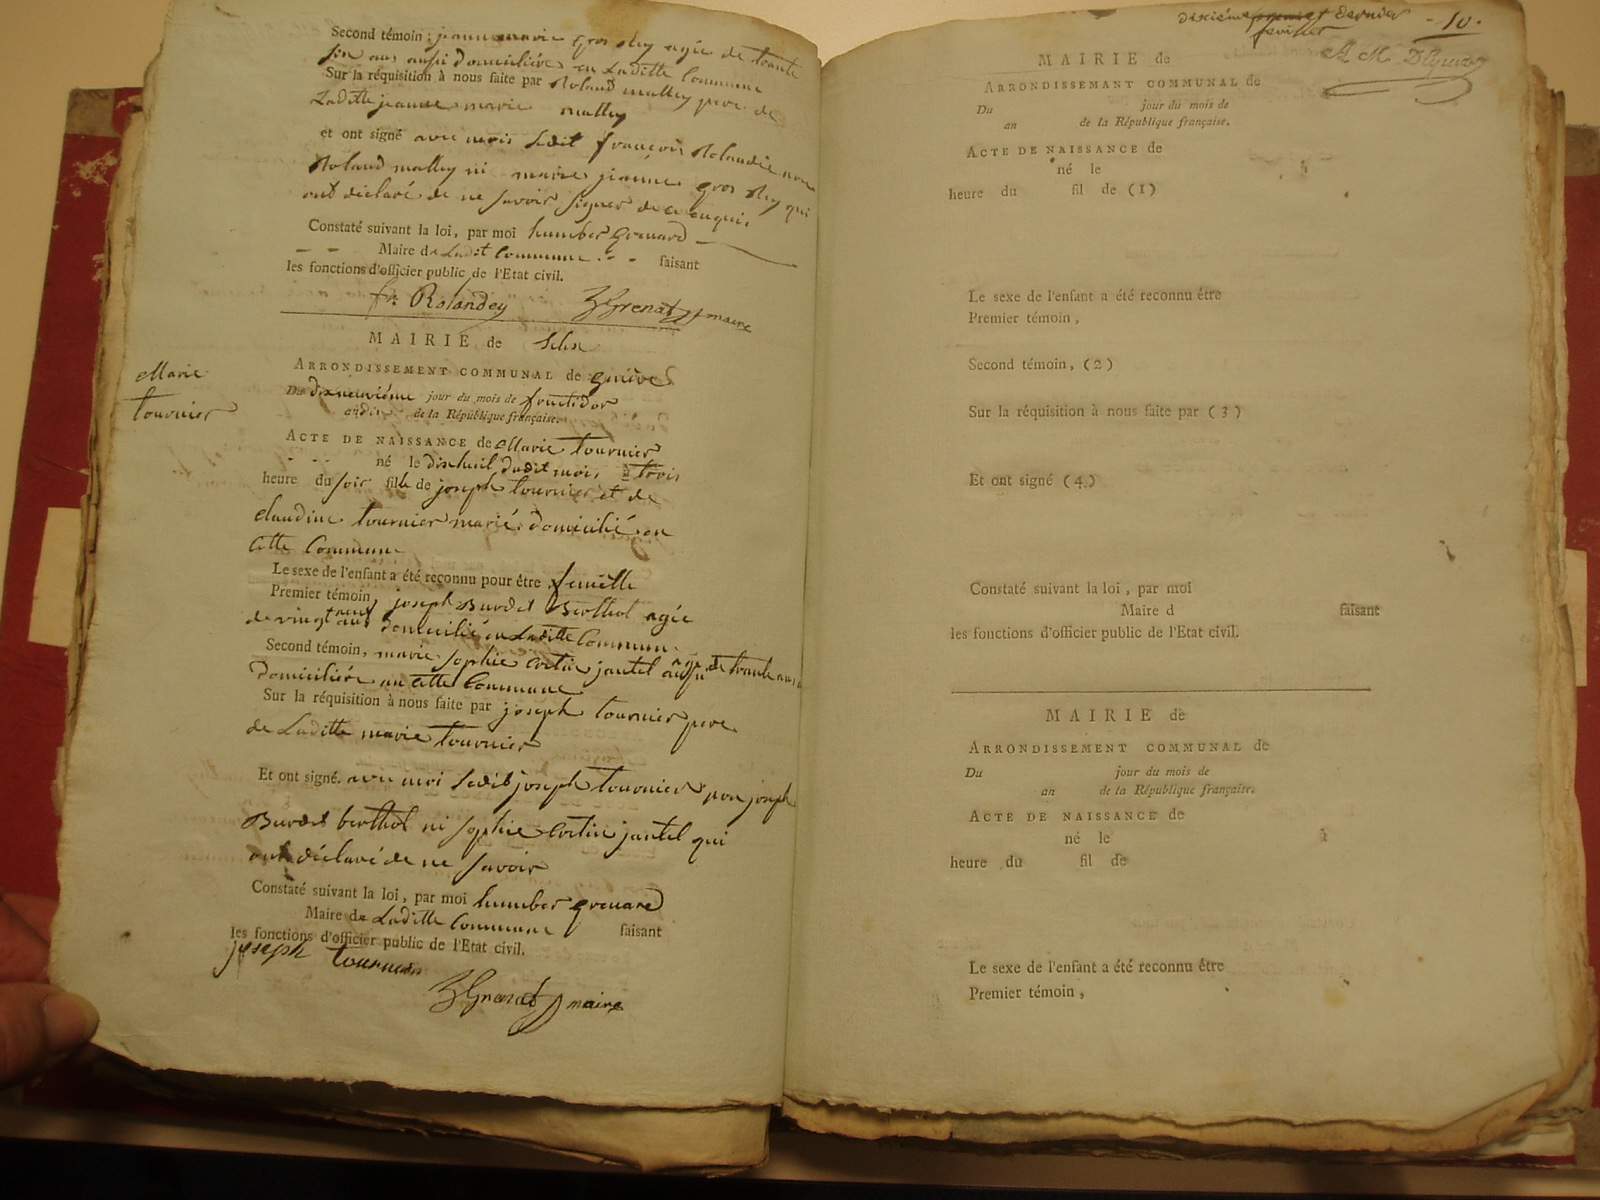 Second témoin, jeanne marie gros Rey agée de trante
six ans aussi domiciliée en Laditte Commune
Sur la réquisition à nous faite par Roland mallley pere de
Laditte jeanne marie malley
et ont signé avec moi Ledit françois Rolandie non
Roland malley ni marie jeanne gros Rey qui
ont déclaré de ne savoir signer de ce enquis
Constaté suivant la loi, par moi humber grenard
Maire de Ladit Commune faisant
les fonctions d'officier public de l'Etat civil.
fr. Rolandey Grenat maire
MAIRIE de
ARRONDISSEMENT COMMUNAL de genève
Marie
tournier
Du dixneuviéme jour du mois de fructidor
an dix de la République française.
ACTE DE NAISSANCE de Marie tournier
né le dixhuit dudit mois à trois
heure du soir fille de joseph tournier et de
claudine tournier mariés domicilié en
cette Commune
Le sexe de l'enfant a été reconnu pour être femelle
Premier témoin, joseph Burdet Berthol agée
de vingt ans domicilié en Laditte Commune.
Second témoin, marie sophie Crétin jantel aussi de trante ans
domiciliée en cette Commune
Sur la réquisition à nous faite par joseph tournier pere
de Laditte marie tournier
Et ont signé. avec moi Ledit joseph tournier non joseph
Burdet berthol ni sophie Cretin jantel qui
ont déclaré de ne savoir
Constaté suivant la loi, par moi humber grenard
Maire de Laditte Commune faisant
les fonctions d'officier public de l'Etat civil.
joseph tournier
Grenat maire
dixiéme et dernier - 10 -
feuillet
MAIRIE de
ARRONDISSEMANT COMMUNAL de
Du jour du mois de
an de la République française.
ACTE DE NAISSANCE de
né le
heure du fil de (1)
Le sexe de l'enfant a été reconnu être
Premier témoin,
Second témoin, (2)
Sur la réquisition à nous faite par (3)
Et ont signé (4)
Constaté suivant la loi, par moi
Maire d faisant
les fonctions d'officier public de l'Etat civil.
MAIRIE de
ARRONDISSEMENT COMMUNAL de
Du jour du mois de
an de la République française.
ACTE DE NAISSANCE de
né le
heure du fil de
Le sexe de l'enfant a été reconnu être
Premier témoin,